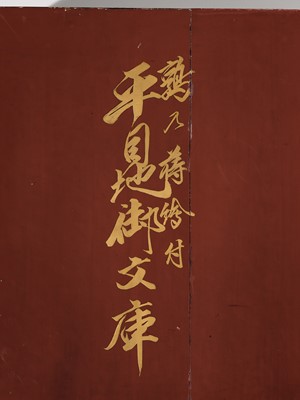 乃蒔繪付
平目地御文庫